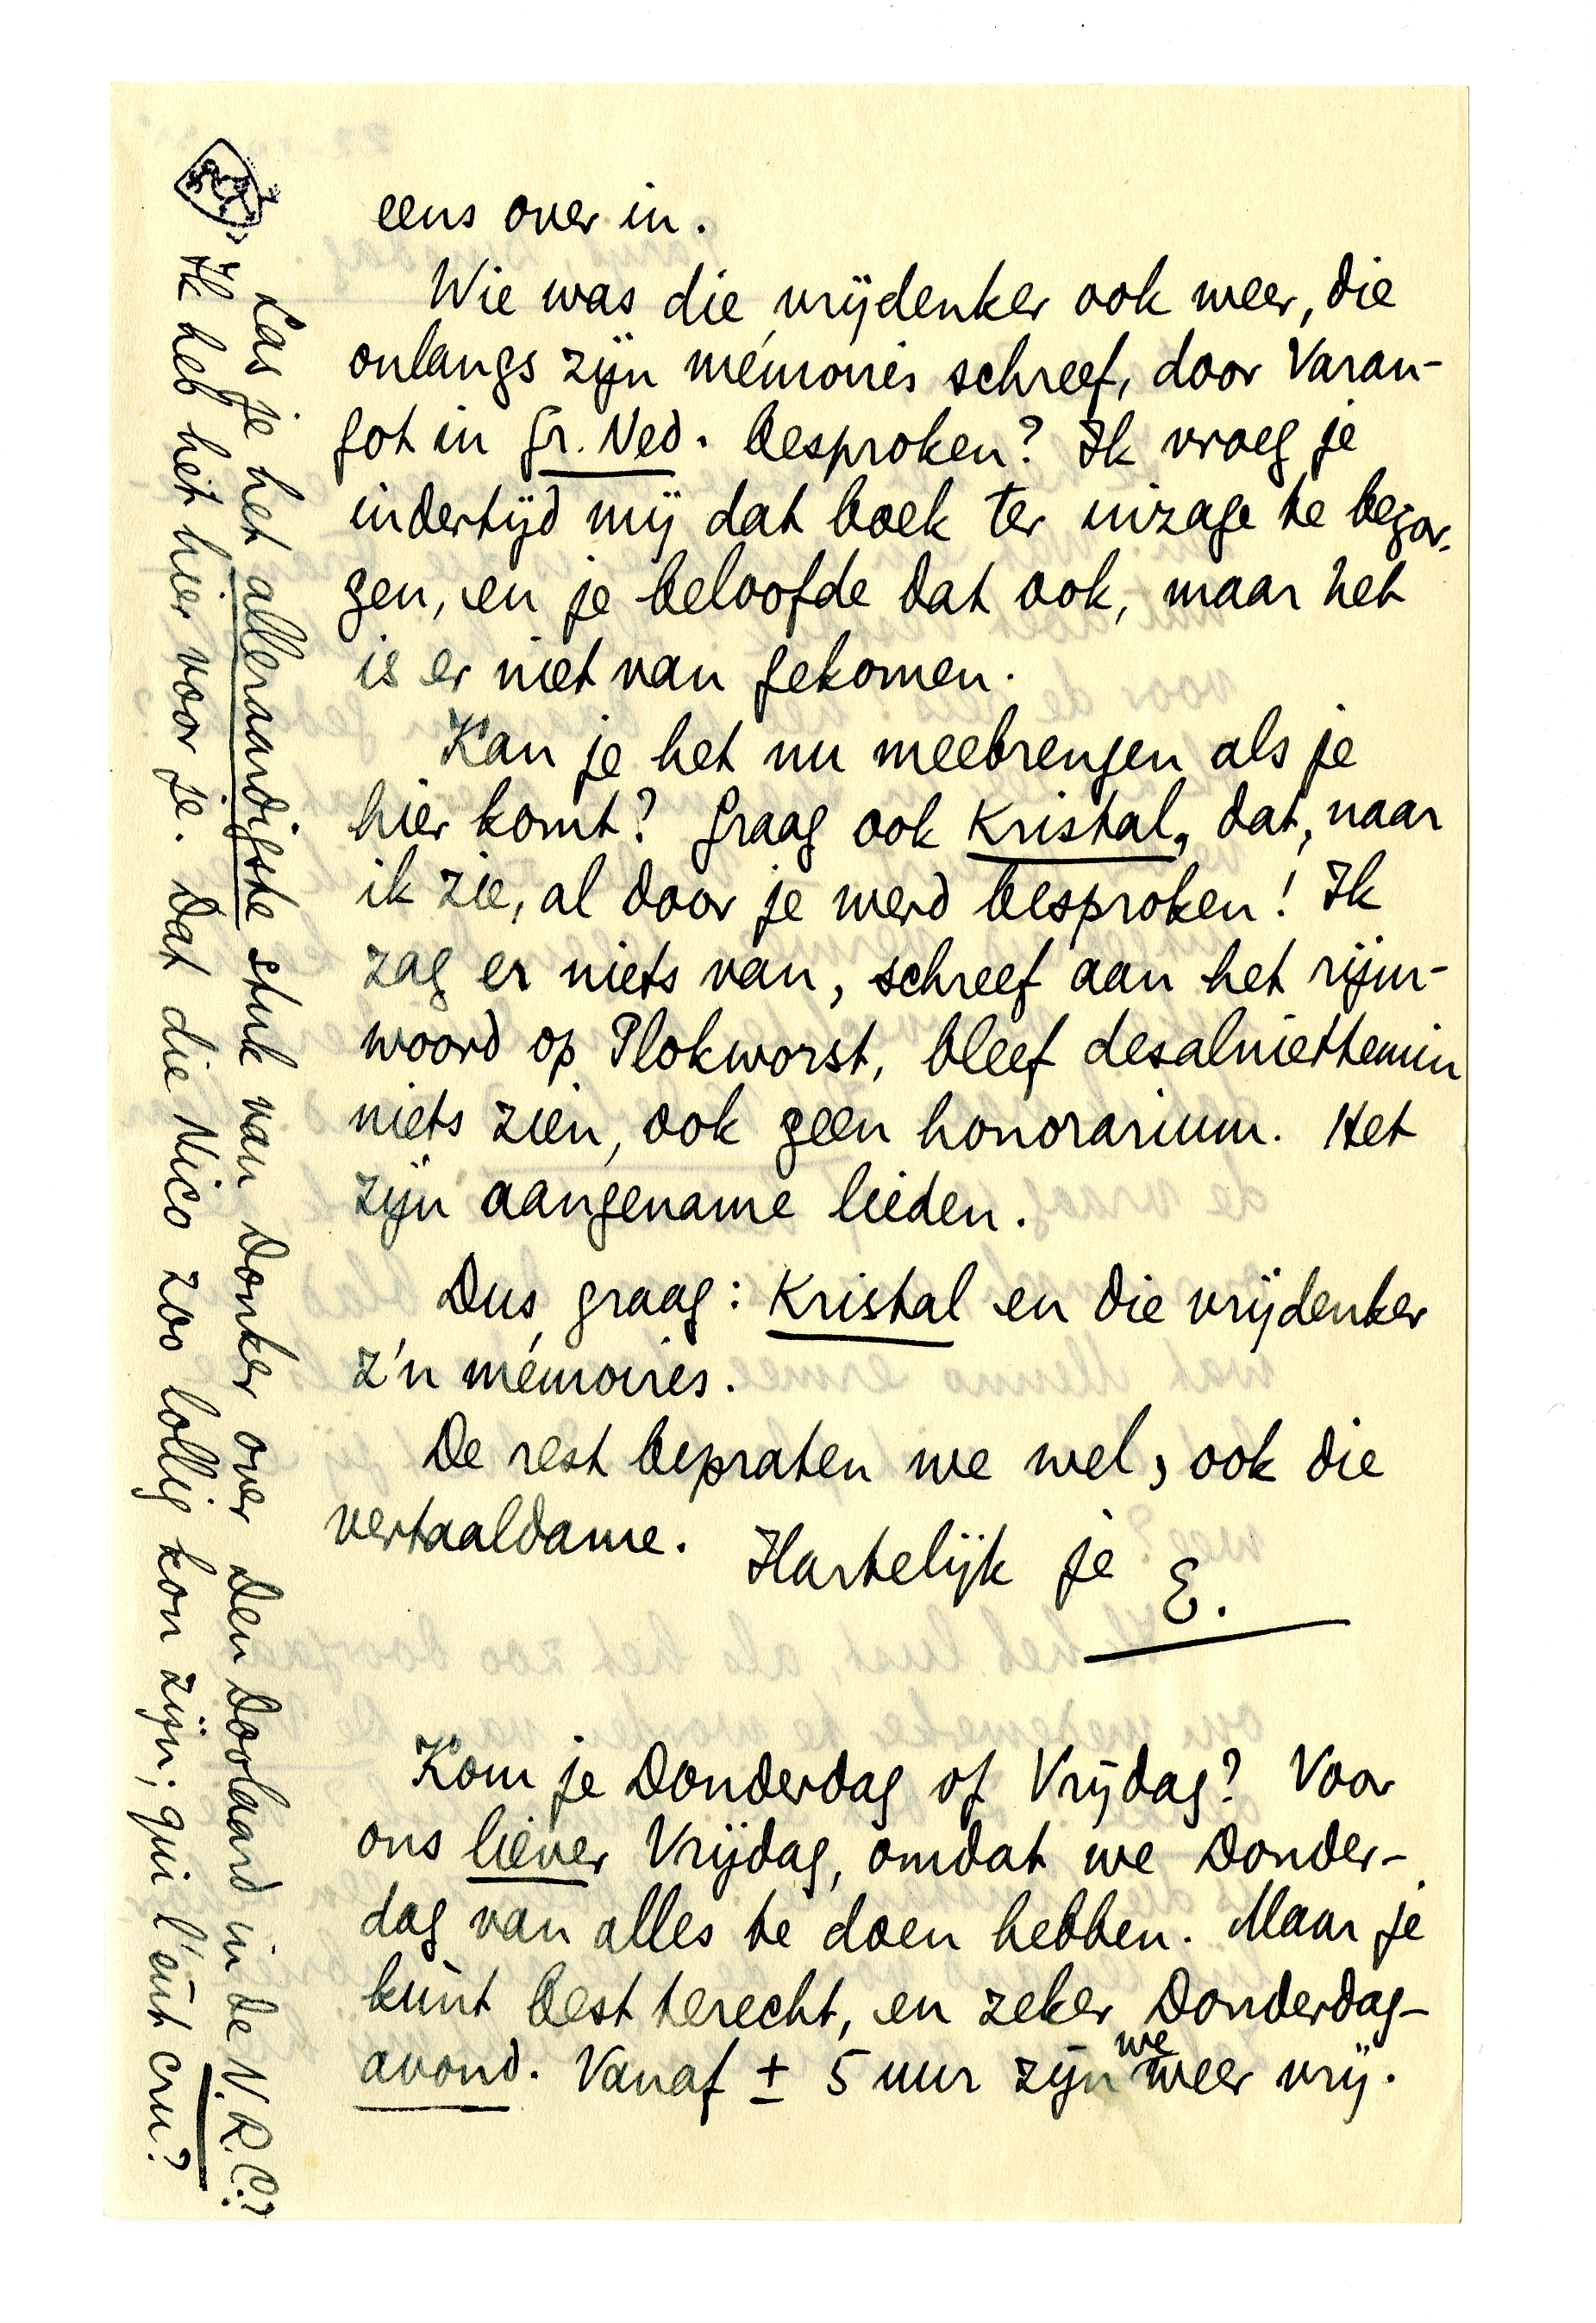 eens over in.
Wie was die vrijdenker ook weer, die
onlangs zijn mémoires schreef, door Varan-
got in Gr. Ned. besproken? Ik vroeg je
indertijd mij dat boek ter inzage te bezor-
gen, en je beloofde dat ook, maar het
is er niet van gekomen.
Kan je het nu meebrengen als je
hier komt? Graag ook Kristal, dat, naar
ik zie, al door je werd besproken! Ik
zag er niets van, schreef aan het rijm-
woord op Plokworst, bleef desalniettemin
niets zien, ook geen honorarium. Het
zijn aangename lieden.
Dus graag: Kristal en die vrijdenker
z'n mémoires.
De rest bepraten we wel, ook die
vertaaldame. Hartelijk je E.
Kom je Donderdag of Vrijdag? Voor
ons liever Vrijdag, omdat we Donder-
dag van alles te doen hebben. Maar je
kunt best terecht, en zeker Donderdag-
avond. Vanaf ± 5 uur zijn we weer vrij.
Las je het alleraardigste stuk van Donker over Den Doolaard in de N.R.C.?
Ik heb het hier voor je. Dat die Nico zoo lollig kon zijn; qui l'eût cru?